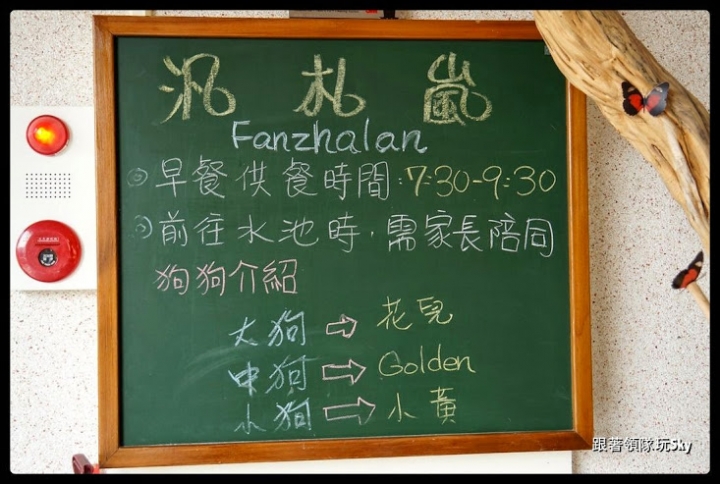 汎札嵐
Fanzhalan
◎早餐供餐時間:7:30-9:30
◎前往水池時,需家長陪同
狗狗介紹
大狗⇨花兒
中狗⇨Golden
小狗⇨小黃
跟著領隊玩Sky